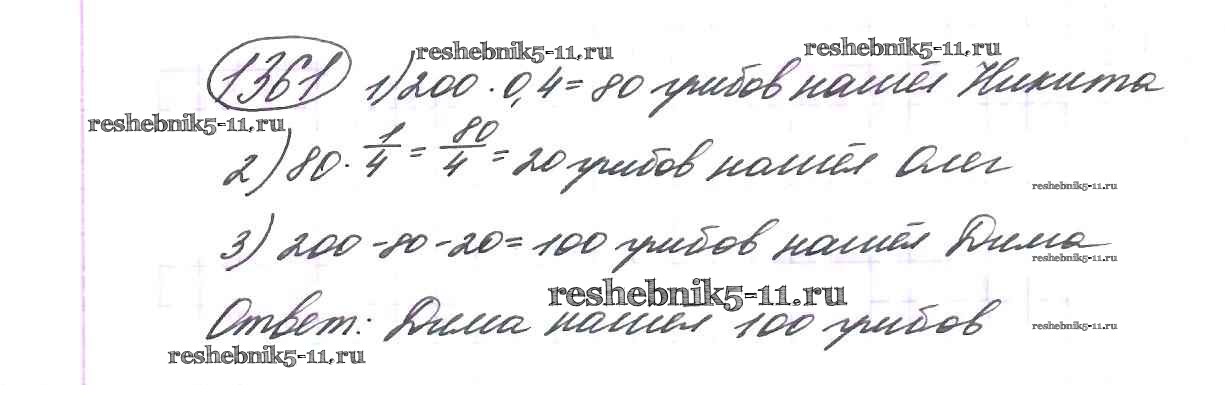 reshebnik5-11.ru reshebnik5-11.ru
1361 1) 200 · 0,4 = 80 грибов нашёл Никита
reshebnik5-11.ru
2) 80 · 1/4 = 80/4 = 20 грибов нашёл Олег
reshebnik5-11.ru
3) 200 - 80 - 20 = 100 грибов нашёл Дима
reshebnik5-11.ru
reshebnik5-11.ru
Ответ: Дима нашёл 100 грибов
reshebnik5-11.ru
reshebnik5-11.ru